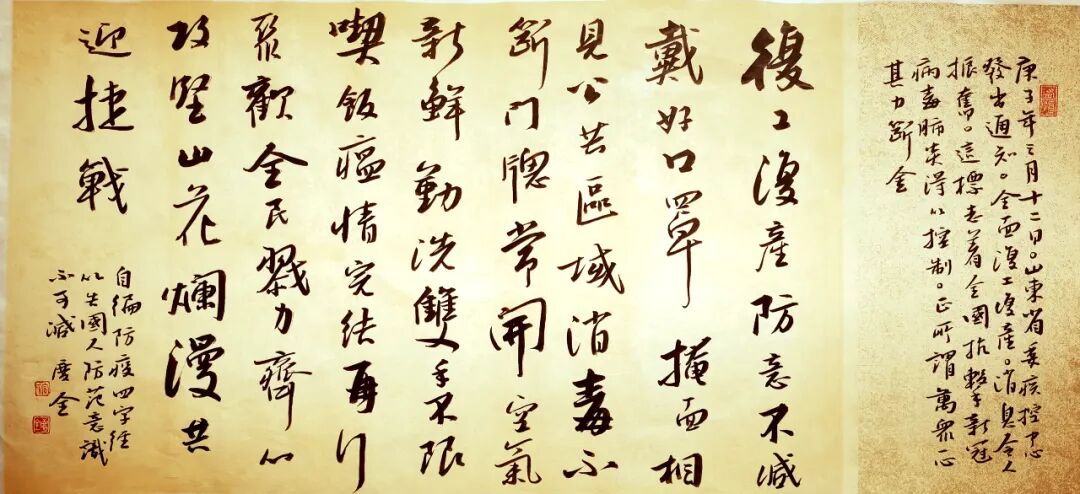 庚子年三月十二日。山東省委疾控中心
發出通知。全面復工復產。消息令人
振奮。這標志着全國抗擊新冠
病毒肺炎得以控制。正所謂萬眾一心
其力斷金
復工復產防意不減
戴好口罩掩面相
見公共區域消毒不
斷門牕常開空氣
新鮮勤洗雙手不限
喫飯瘟情完結再行
聚歡全民戮力齊心
攻堅山花爛漫共
迎捷戰
自編防疫四字經
以告國人防范意識
不可減